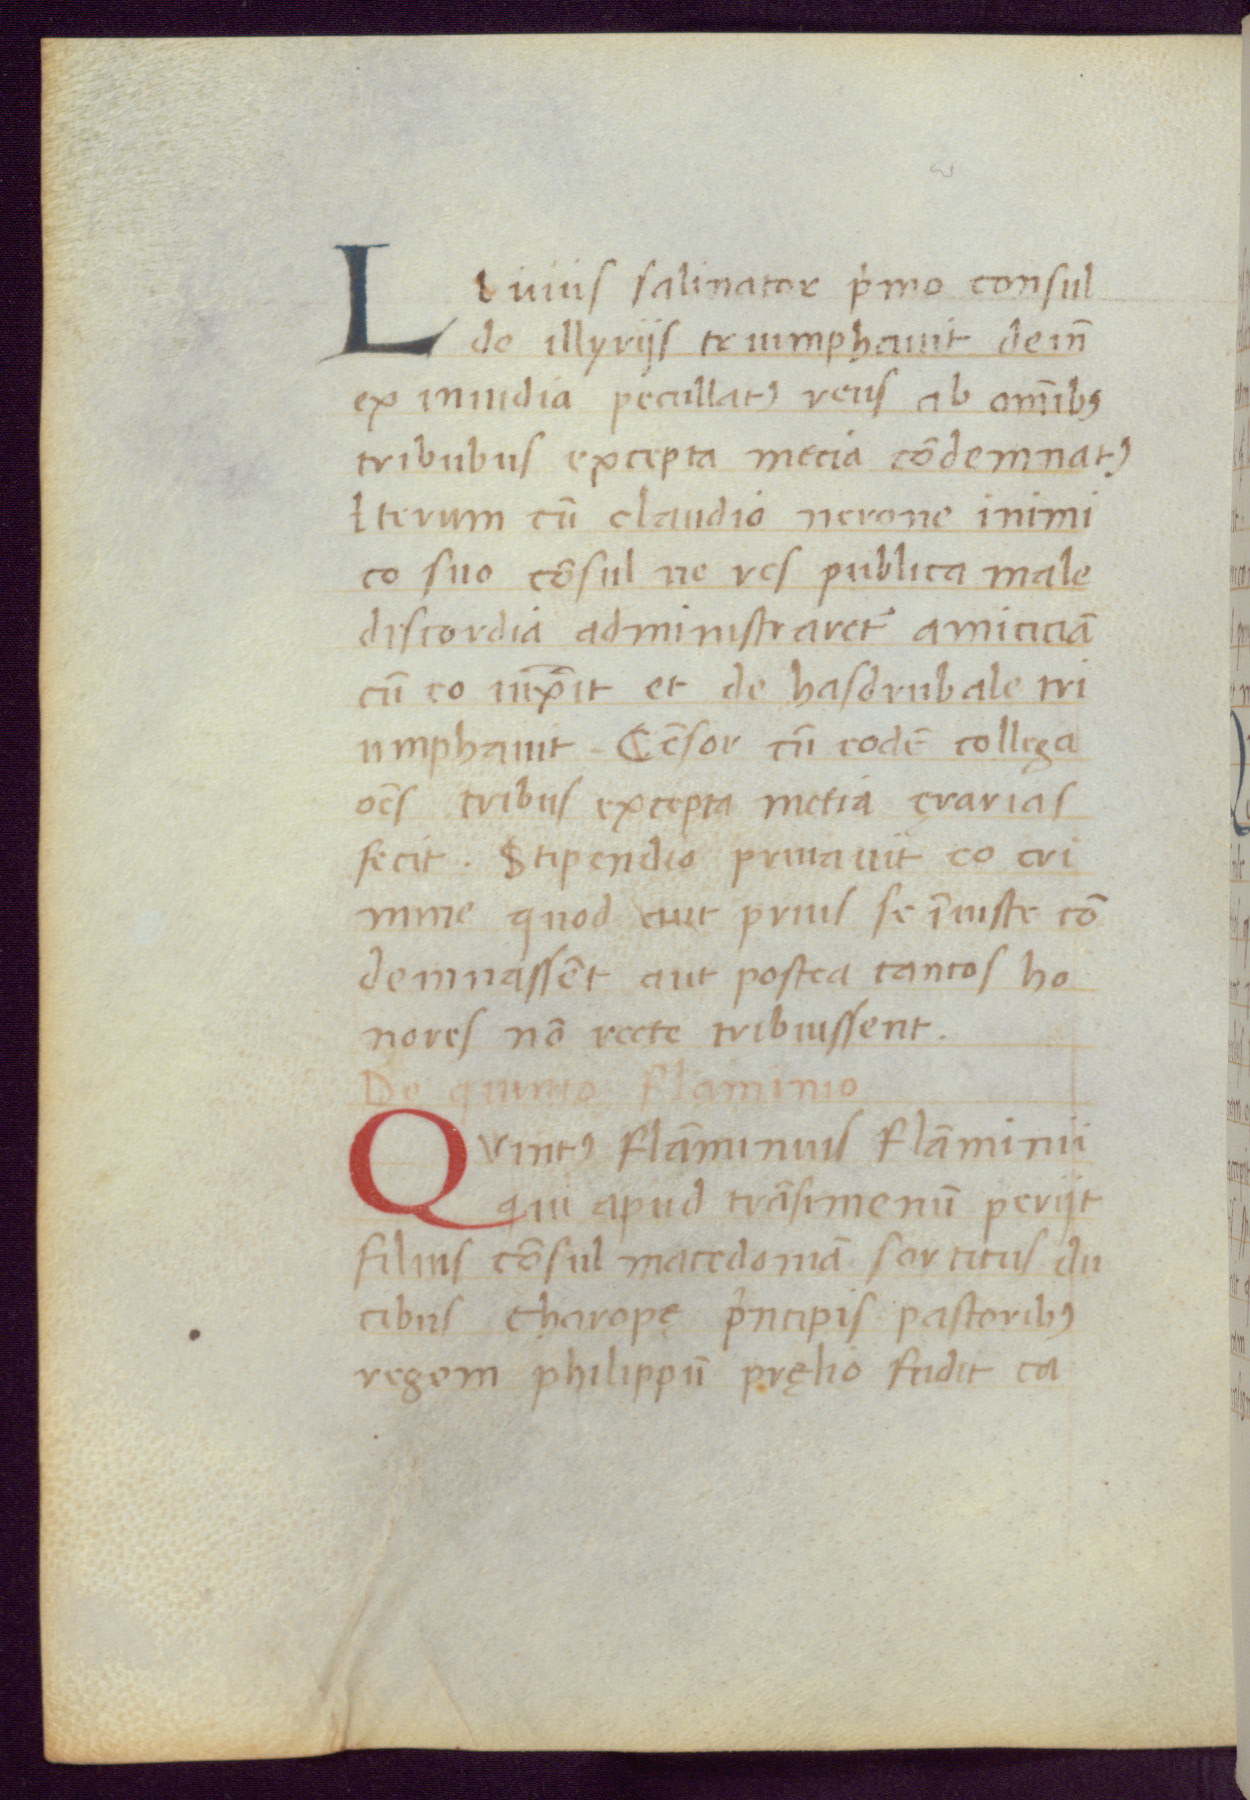 L Liuius salinator p̉mo consul
de illyrijs triumphauit dein̄
ex inuidia pecullatꝰ reus ab om̄ibꝰ
tribubus excepta mecia cōdemnatꝰ
Iterum cū claudio nerone inimi
co suo cōsul ne res publica male
discordia administraret᷑ amiciciā
cū eo
et de hasdrubale tri
umphauit. Cēsor cū eodē collega
oēs tribus excepta metia ęrarias
fecit. Stipendio priuauit eo cri
mine quod aut prius se īiuste cō
demnassēt aut postea tantos ho
nores nō recte tribuissent.
De quinto Flaminio
QVintꝰ Flāminuus Flāminii
qui apud trāsimenū perijt
filius cōsul macedoniā sortitus du
cibus Charopę p̉ncipis pastoribꝰ
regem philippū pręlio fudit ca